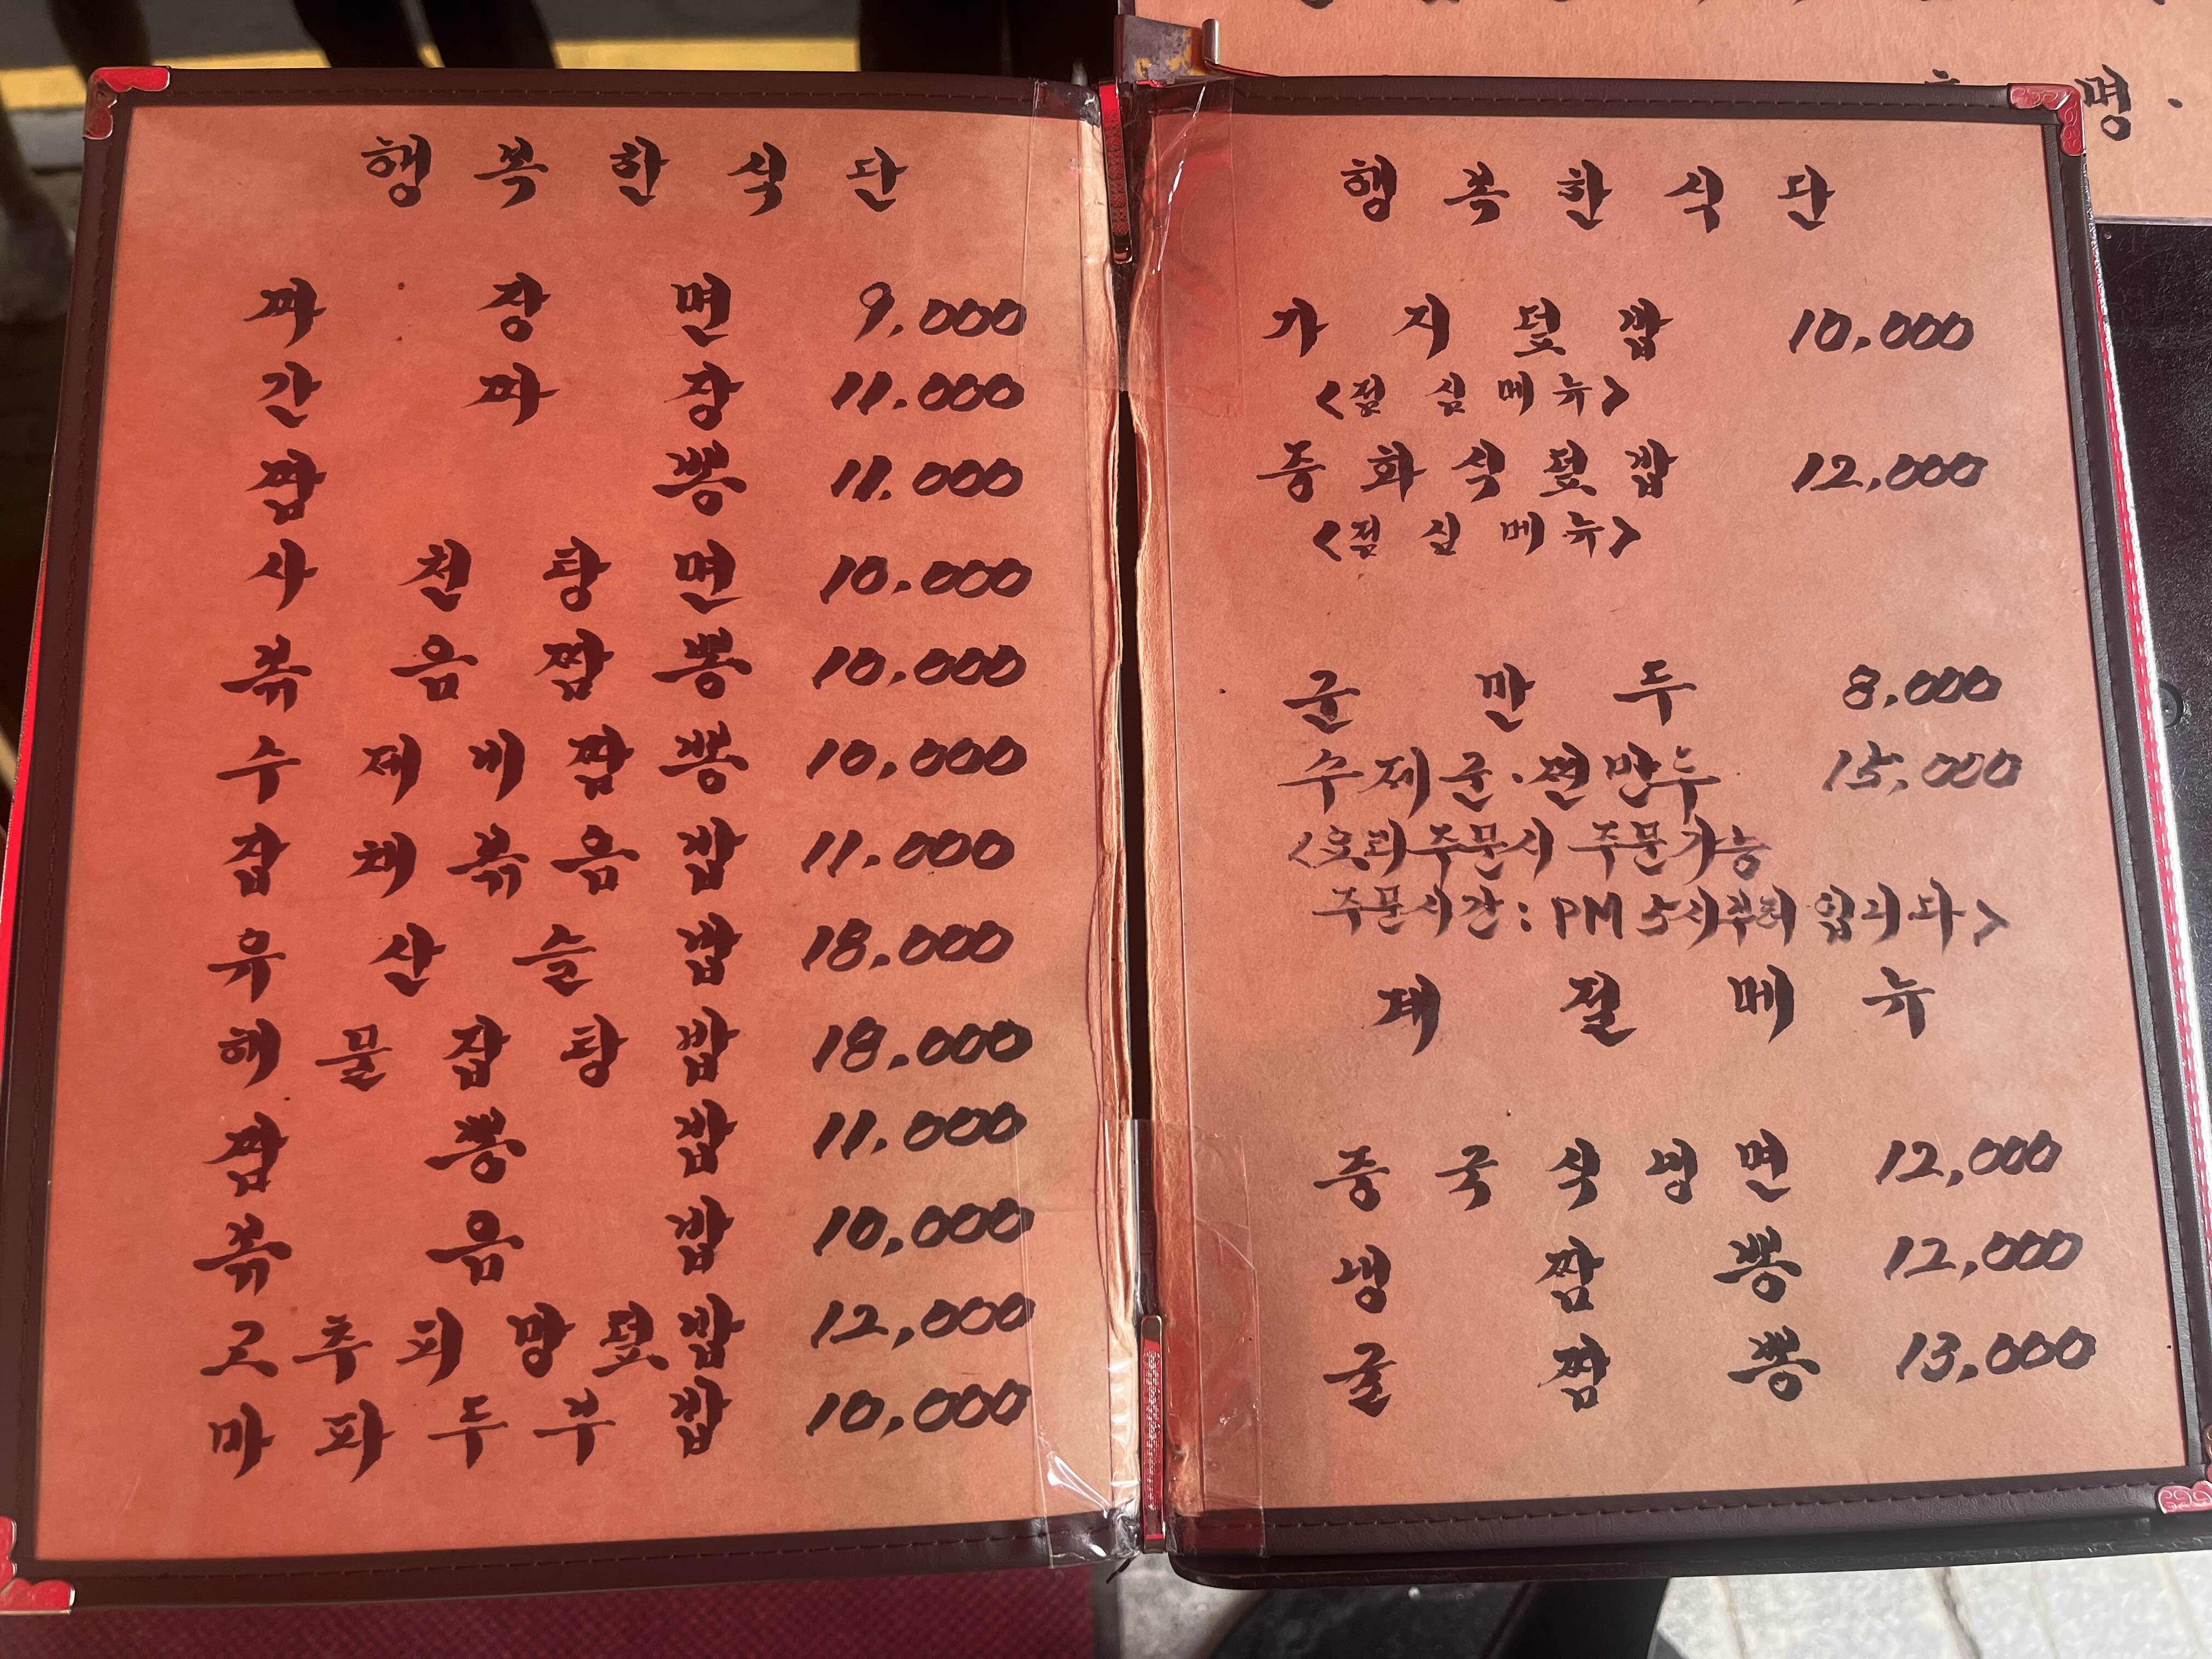 행복한식단
짜장면 9,000
간짜장 11.000
짬뽕 11.000
사천탕면 10.000
볶음짬뽕 10.000
수제비짬뽕 10,000
잡채볶음밥 11.000
유산슬밥 18.000
해물잡탕밥 18.000
짬뽕밥 11.000
볶음밥 10,000
고추피망덮밥 12,000
마파두부밥 10,000
행복한식단
가지덮밥 10,000
<점심메뉴>
중화식덮밥 12,000
<점심메뉴>
군만두 8,000
수제군·찐만두 15,000
<요리주문시 주문가능
주문시간: PM 5시부터 입니다>
계절메뉴
중국식냉면 12,000
냉짬뽕 12,000
굴짬뽕 13,000
명.